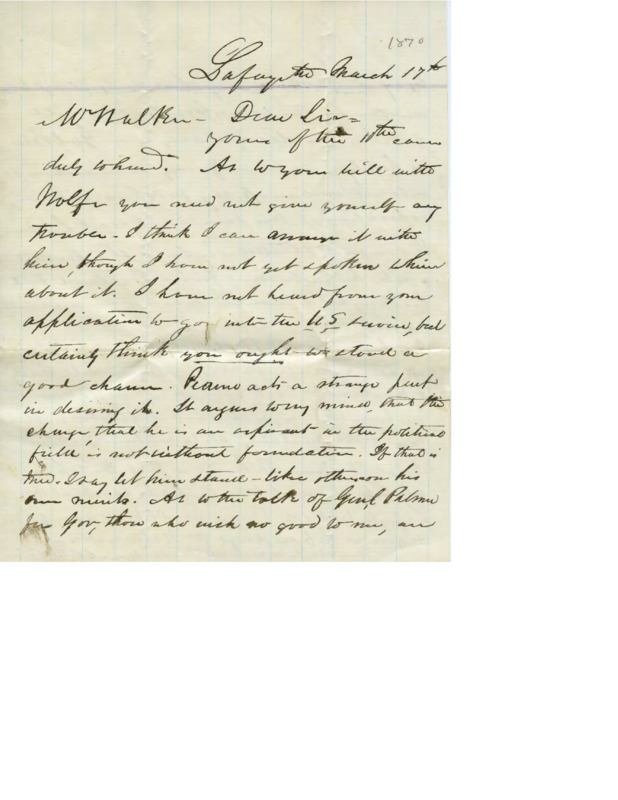 1870
Lafayette March 17th
Mr Walker - Dear Sir =
yours of the 10th came
duly to hand. As to your bill with
Wolfe you need not give yourself any
trouble - I think I can arrange it with
him, though I have not yet spoken to him
about it. I have not heard from your
application to go into the U.S service, but
certainly think you ought to stand a
good chance. acts a strange part
in desiring it. It argues to my mind, that the
charge that he is an aspirant in the political
field, is not without foundation. If that is
true - I say let him stand - like others on his
own merits. As to the talk of Genl Palmer
for Gov, those who wish no good to me, are